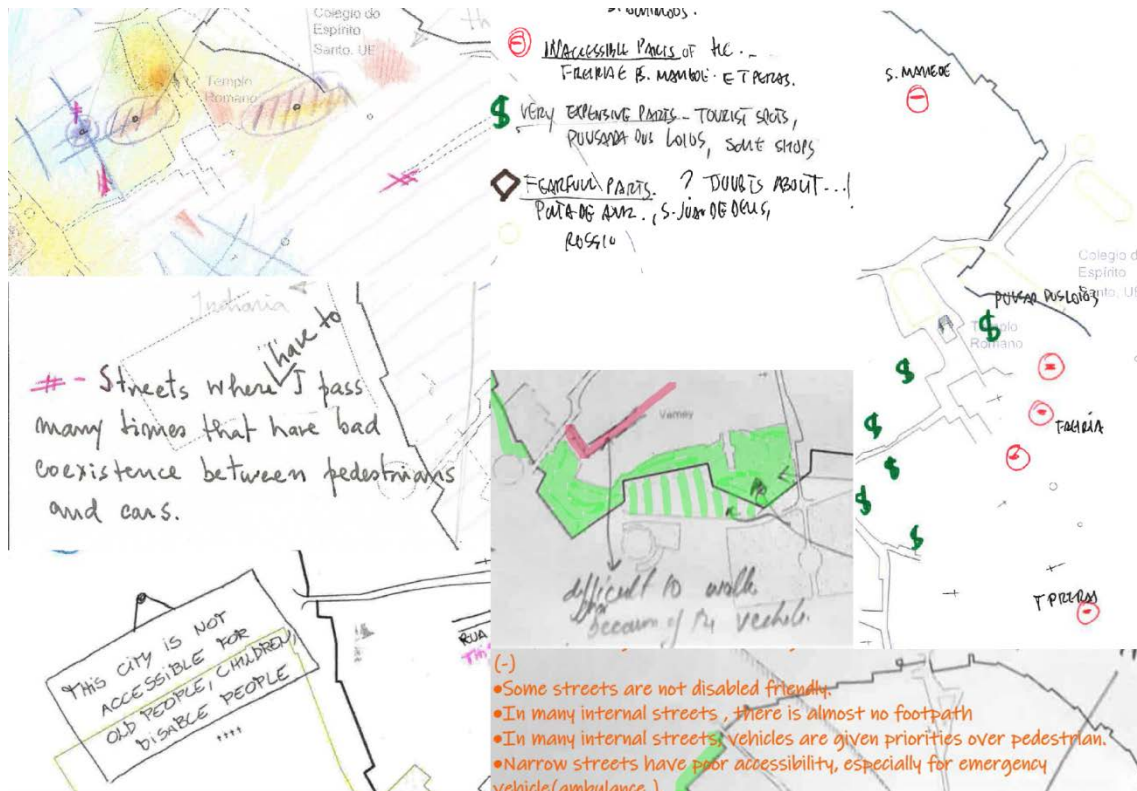 Colegio do
Espírito
Santo, UE
Templo
Romano
INACCESSIBLE PARTS OF THE
FREIRIA E S. MAMEDE. E T PERAS.
$ VERY EXPENSIVE PARTS... TOURIST SPOTS,
POUSADA DOS LOIOS, SOME SHOPS
FEARFULL PARTS. ? DOUBTS ABOUT...!
S. JUAN DE DEUS,
ROSSIO
S. MAMEDE
Colegio d
Espírito
Santo, UE
POUSAD DOS LOIOS
Templo
Romano
FREIRIA
T PERAS
# - Streets where I have to pass
many times that have bad
coexistence between pedestrians
and cars.
difficult to walk
because of the vechile.
THIS CITY IS NOT
ACCESSIBLE FOR
OLD PEOPLE, CHILDREN,
DISABLE PEOPLE
....
RUA
(-)
•Some streets are not disabled friendly.
•In many internal streets , there is almost no footpath
•In many internal streets, vehicles are given priorities over pedestrian.
•Narrow streets have poor accessibility, especially for emergency
vehicle(ambulance )